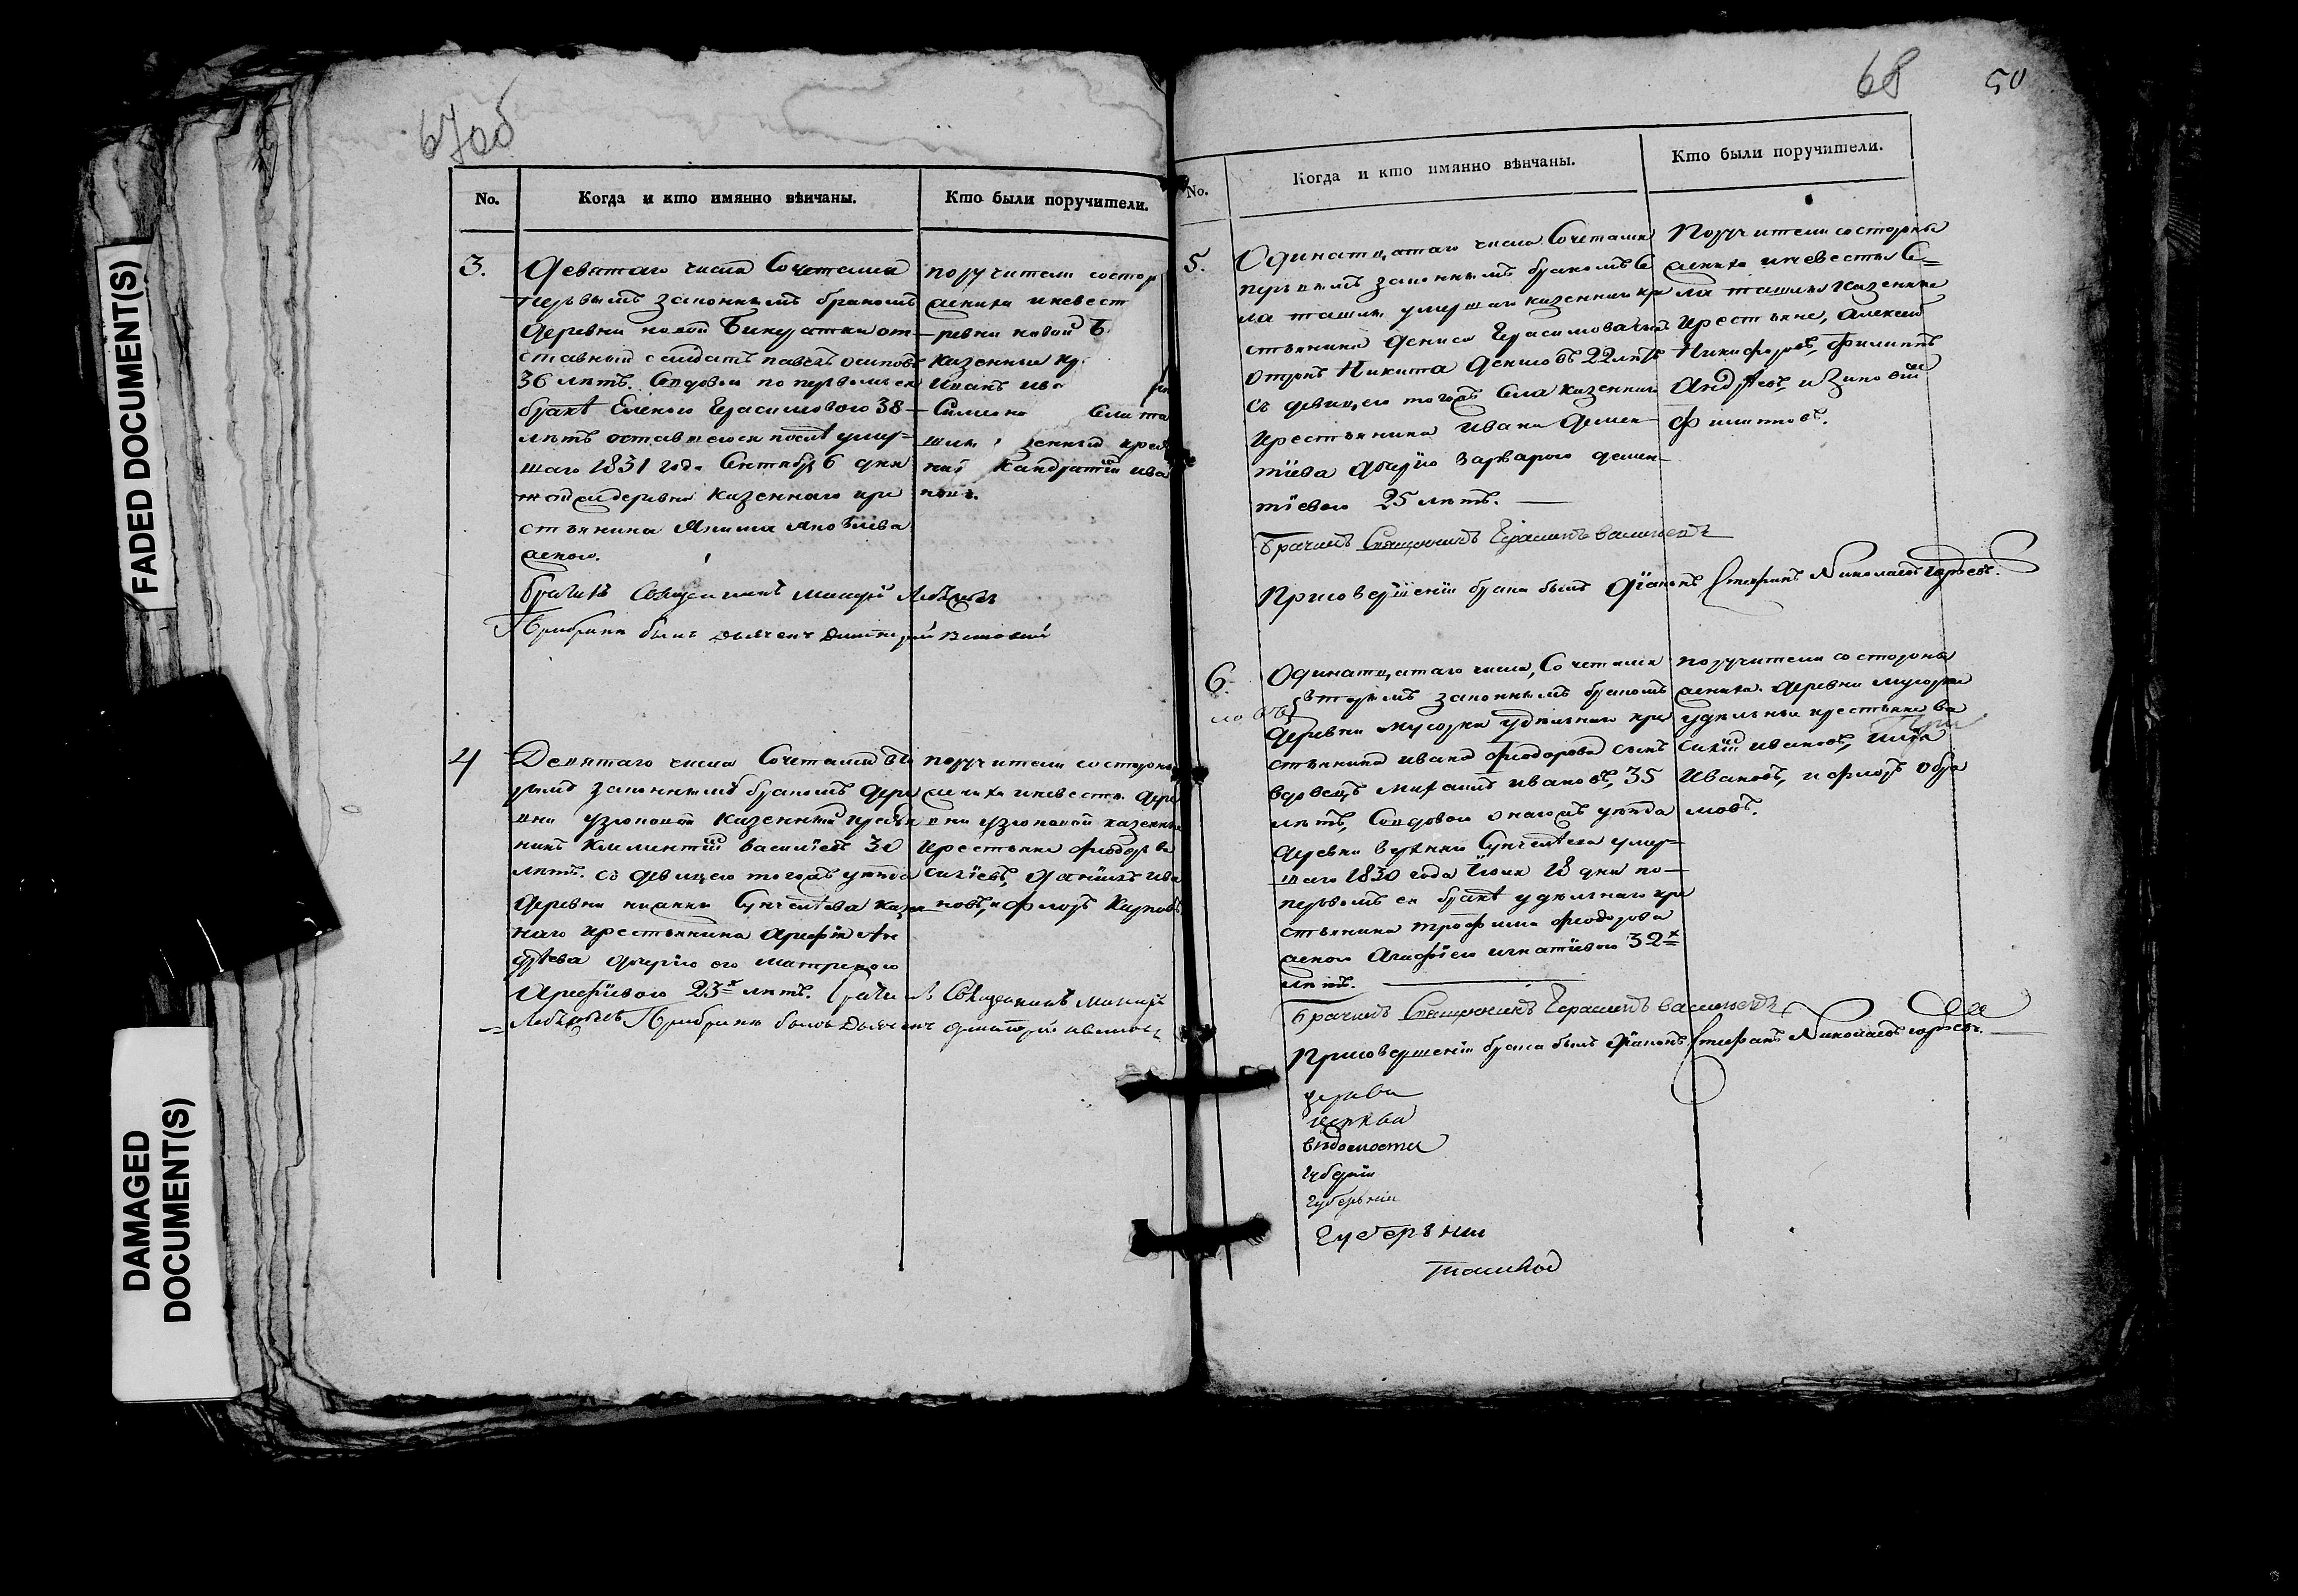 FADED DOCUMENT(S)
DAMAGED
DOCUMENT(S)
67об
No.
Когда и кто имянно вѣнчаны.
Кто были поручители.
3.
Девятаго числа Сочетался
первымъ законнымъ бракомъ
деревни новой Бикулатки от-
ставный салдатъ павелъ осиповъ
36 лѣтъ. Совдовою по первомъ ея
бракѣ Еленою Герасимовою 38-
лѣтъ оставшеюся послѣ умер-
шаго 1831 года Сентября 6 дня
тойже деревни казеннаго кре
стьянина Якима Яковлева
женою.
бракъ Священникъ
При бракѣ былъ дьячекъ Димитрий
поручители состор
жениха иневест
ревни новой Б
казенные кр
Иванъ ива
Симеонъ Села та
шлы енный крес
нинъ Кандратiй ива
новъ.
4
Девятаго числа Сочетался вто
рымъ законнымъ бракомъ дере
вни узюковой казенный крестья
нинъ Климентiй василiевъ 30
лѣтъ. съ девицею тогожъ уезда
деревни нижни Сунчелѣева казен
наго крестьянина Арефiя
дочерiю его матреною
Арефiевою 23х лѣтъ. Священникъ
При бракѣ былъ дьячекъ
поручители состороны
жениха иневесты дере
вни узюковой казенные
крестьяне феодоръ ва
силiевъ, Данiилъ ива
новъ, и флоръ Карповъ
68
50
No.
Когда и кто имянно вѣнчаны.
Кто были поручители.
5.
Одинатцатаго числа Сочетался
первымъ законнымъ бракомъ Се
ла ташлы умершаго казеннаго кре
стьянина Дениса Герасимова сынъ
отрокъ Никита Денисовъ 22 лѣтъ
съ девицею тогожъ Села казеннаго
крестьянина Ивана Демен-
тiева дочерiю варварою демен-
тiевою 25 лѣтъ.
Брачилъ Священникъ Герасимъ васильевъ
При совершенiи брака былъ Дiаконъ Стефанъ Николаевъ
Поручители состороны
жениха иневесты Се=
ла ташлы казенные
крестьяне, Алексей
Никифоровъ, филиппъ
Андреевъ, и Зиновiй
филипповъ.
6.
Одинатцатаго числа, Сочетался
вторымъ законнымъ бракомъ
деревни мусорки удельнаго кре
стьянина ивана феодорова сынъ
вдовецъ михаилъ ивановъ, 35
лѣтъ, Совдовою онагожъ уезда
деревни верхни Сунчелѣева умер=
шаго 1830 года Iюля 18 дня по-
первомъ ея бракѣ удѣльнаго кре
стьянина трофима феодорова
женою Агафiею игнатiевою 32х
лѣтъ.
Брачилъ Священникъ Герасимъ васильевъ
При совершенiи брака былъ Дiаконъ Стефанъ Николаевъ
поручители состороны
жениха деревни мусорки
удельные крестьяне ва
силiй ивановъ, илiя
Ивановъ, и флоръ Абра
мовъ.
церкви
церкви
вѣдомости
губернiи
губернiи